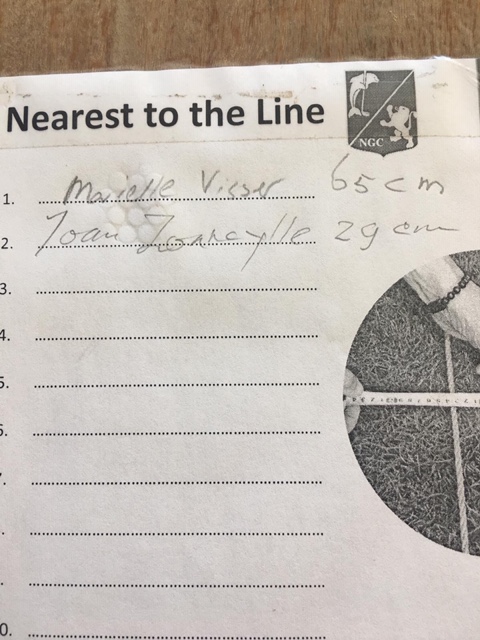 Nearest to the Line
NGC
1. Marielle Visser 65 cm
2. Joan 29 cm
3.
4.
5.
6.
7.
.
.
0.